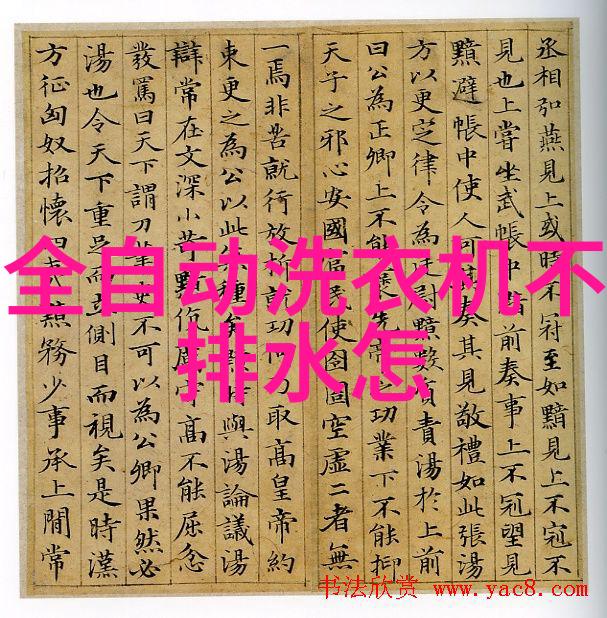 丞相弘燕見上或時不冠至如黯見上不冠不
見也上嘗坐武帳中黯前奏事上不冠望見
黯避帳中使人可其奏其見敬禮如此張湯
方以更定律令為廷尉黯數質責湯於上前
曰公為正卿上不能褒先帝之功業下不能抑
天子之邪心安國富民使囹圄空虛二者無
一焉非苦就行放析就功何乃取高皇帝約
束更之為公以此無種矣黯時與湯論議湯
辯常在文深小苛黯伉厲守高不能屈忿
發罵曰天下謂刀筆吏不可以為公卿果然必
湯也令天下重足而立側目而視矣是時漢
方征匈奴招懷四夷黯務少事承上間常
全自动洗衣机不
排水怎
书法欣赏 www.yac8.com